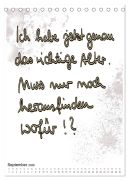 Ich habe jetzt genau
das richtige Alter.
Muss nur noch
herausfinden
wofür !?
September